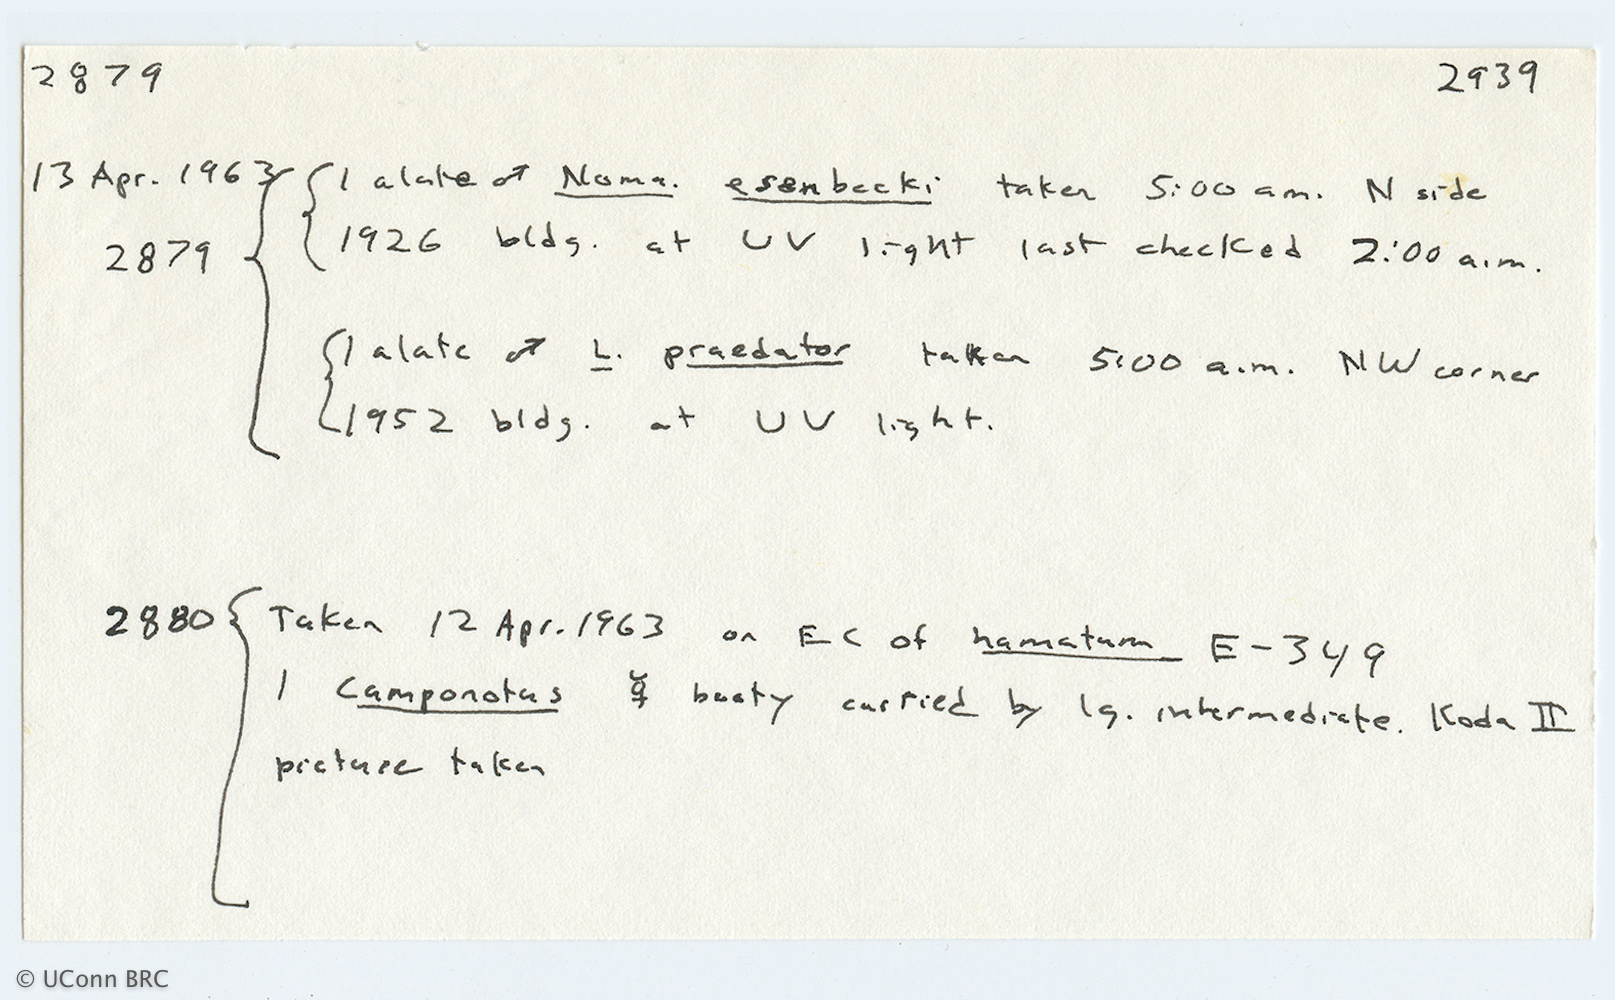 2879 2939
13 Apr. 1963 { 1 alate ♂ Noma. esenbecki taken 5:00 am. N side
2879 1926 bldg. at UV light last checked 2:00 a.m.
{ 1 alate ♂ L. praedator taken 5:00 a.m. NW corner
1952 bldg. at UV light.
2880 { Taken 12 Apr. 1963 on EC of hamatum E-349
1 Camponotus ☿ booty carried by lg. intermediate. Koda II
picture taken
© UConn BRC